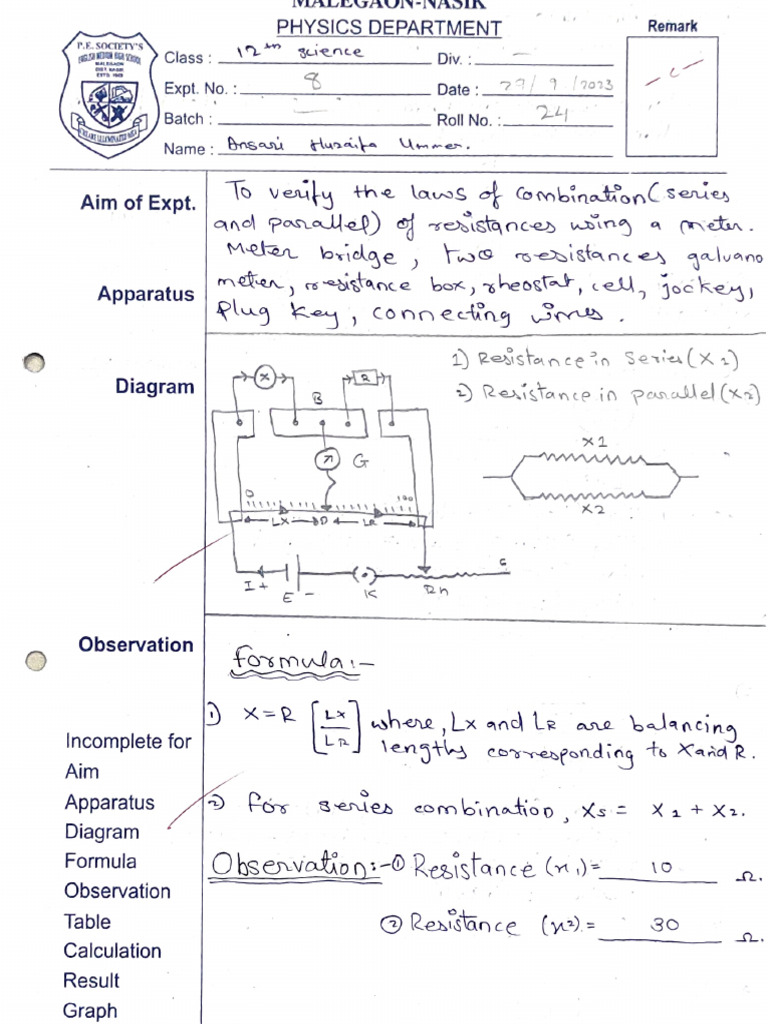 MALEGAON-NASIK
PHYSICS DEPARTMENT
Remark
P.E. SOCIETY'S
ENGLISH MEDIUM HIGH SCHOOL
MALEGAON
DIST. NASIK
Class : 12th science Div. : —
Expt. No. : 8 Date : 29/9/2023
Batch : — Roll No. : 24
Name : Ansari Huzaifa Ummer.
Aim of Expt.
To verify the laws of combination (series
and parallel) of resistances using a meter.
Apparatus
Meter bridge, two resistances galvano
meter, resistance box, rheostat, cell, jockey,
Plug Key, connecting wires.
Diagram
1) Resistance in Series (X1)
2) Resistance in parallel (X2)
X R
B
G
0 100
LX D LR
I + E - K Rh
X1
X2
Observation
formula:-
1) X = R [LX/LR] where, LX and LR are balancing
lengths corresponding to X and R.
2) for series combination, Xs = X1 + X2.
Observation:- ① Resistance (x1) = 10 Ω.
② Resistance (x2) = 30 Ω.
Incomplete for
Aim
Apparatus
Diagram
Formula
Observation
Table
Calculation
Result
Graph